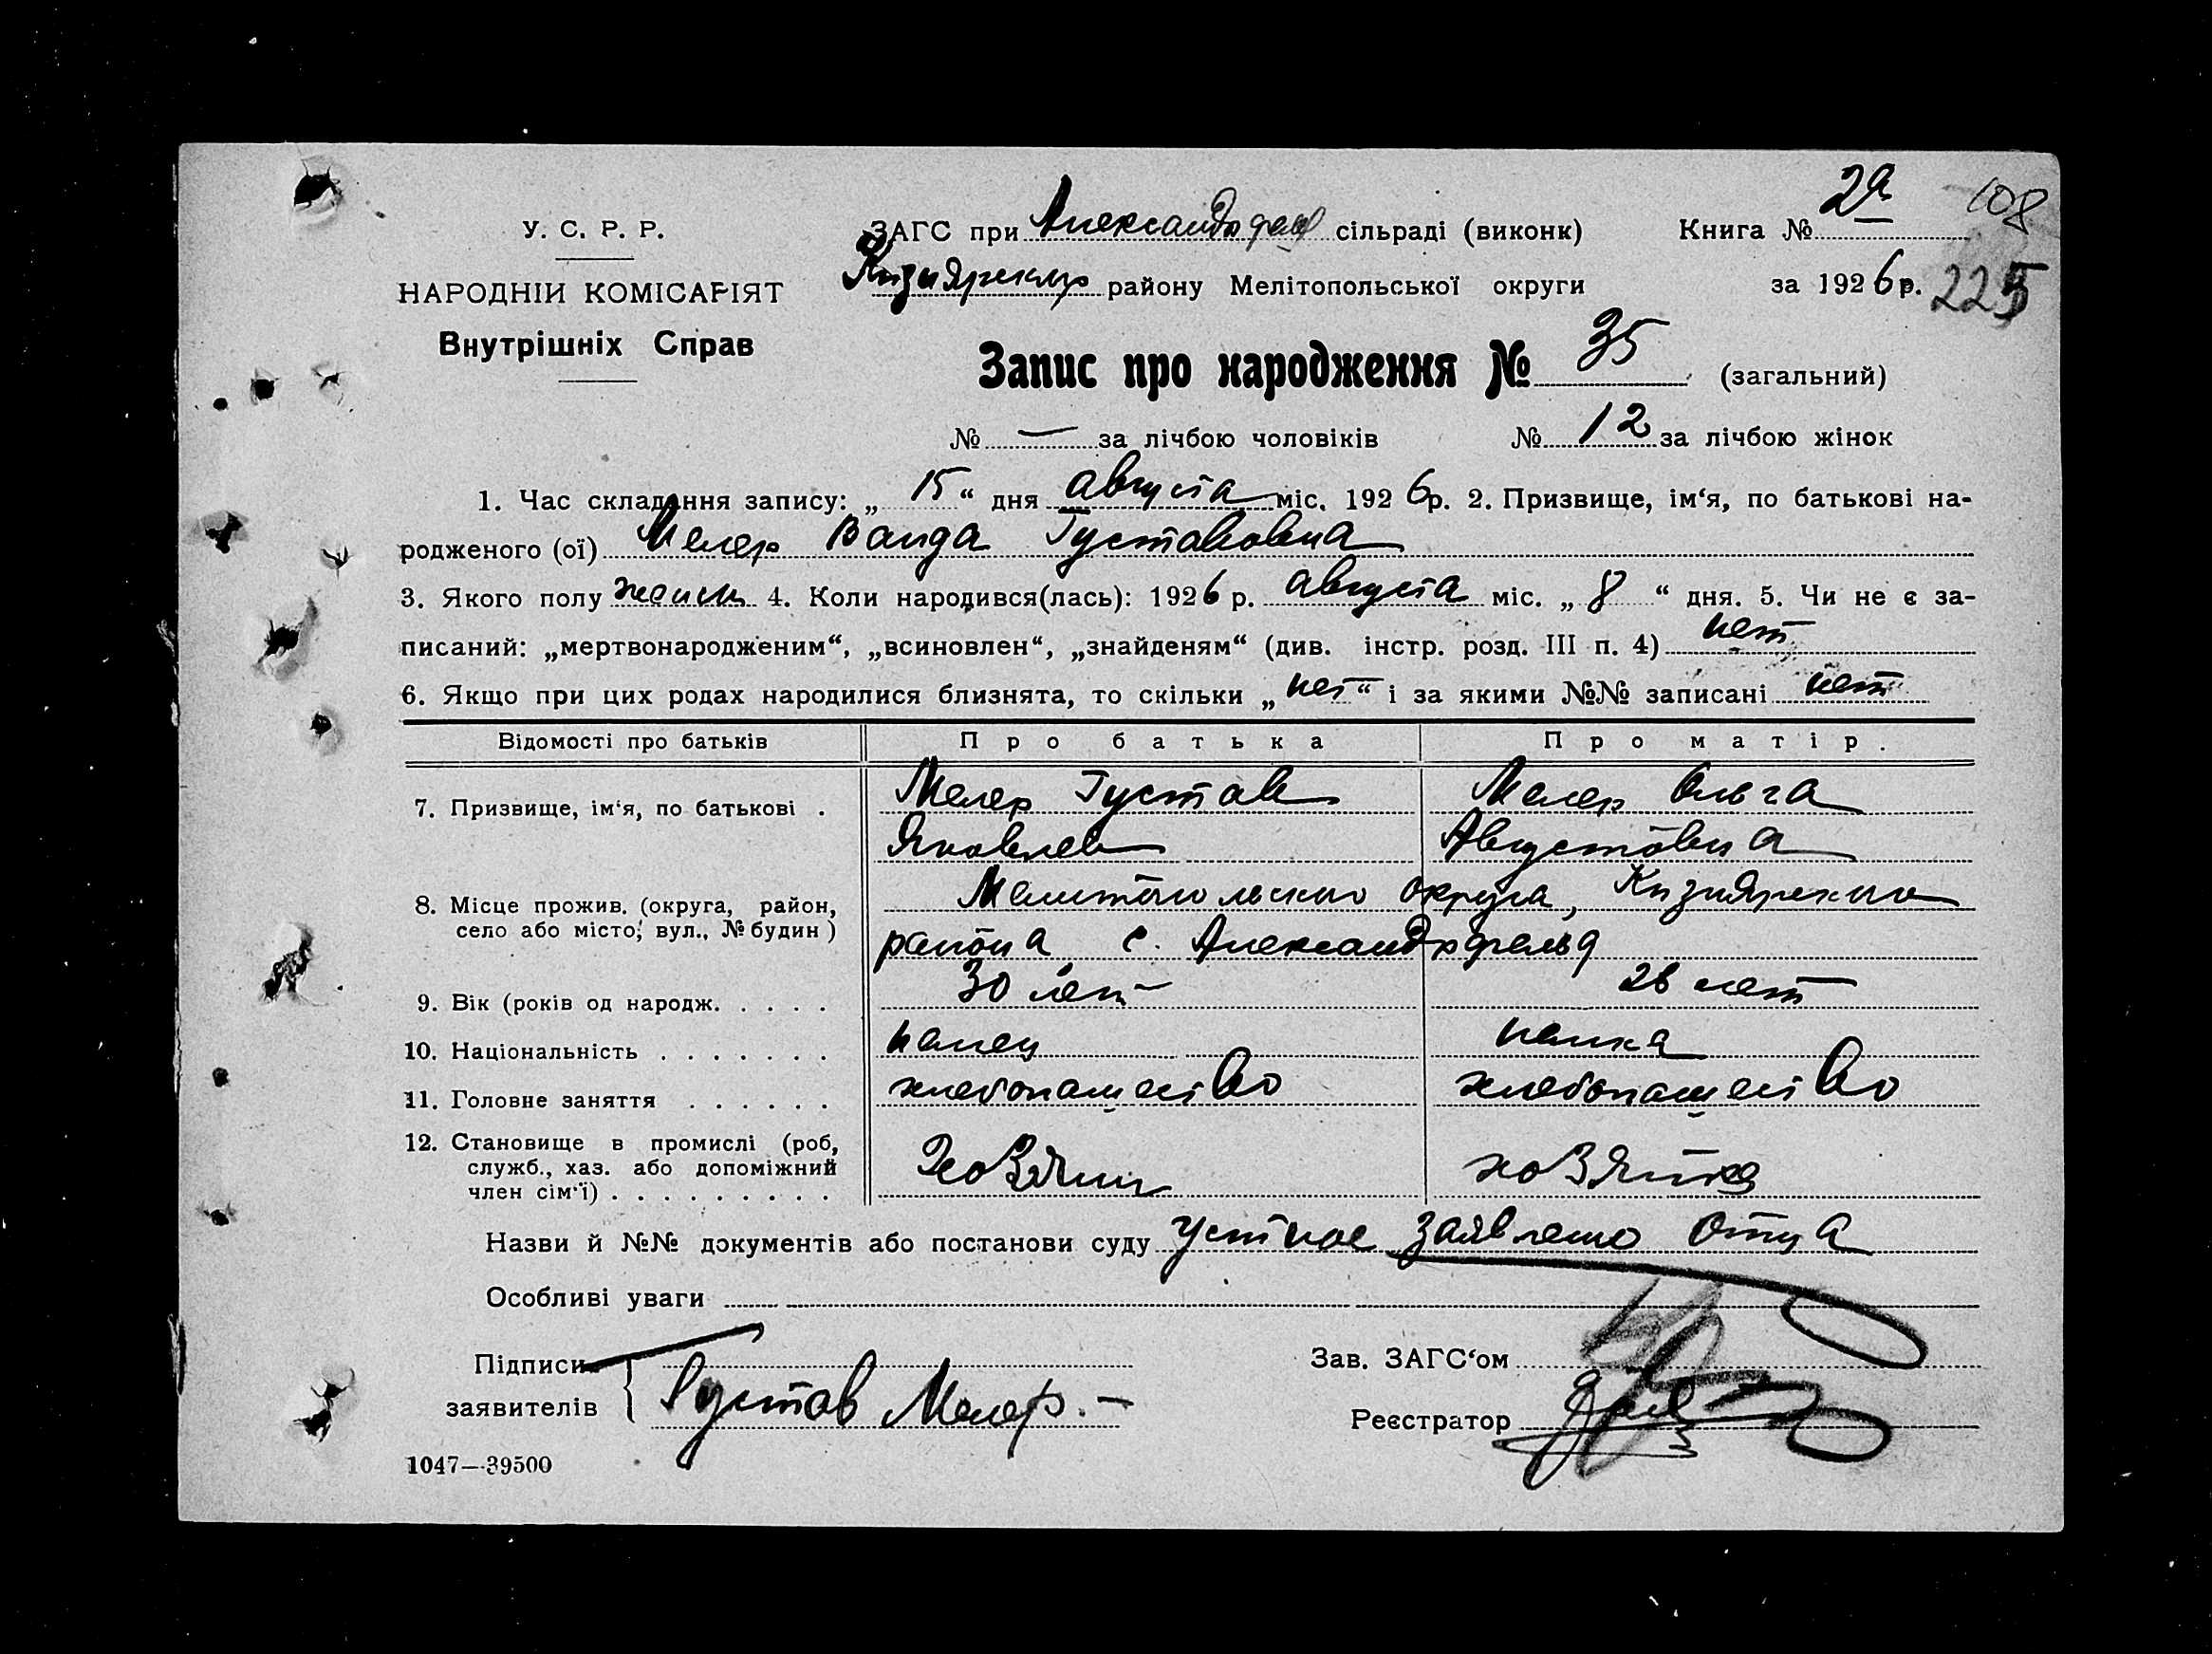 У. С. Р. Р.
НАРОДНІЙ КОМІСАРІЯТ
Внутрішніх Справ
ЗАГС при Александрфельд сільраді (виконк)
Кизиярского району Мелітопольської округи
Книга № 2а
108
за 1926 р. 225
Запис про народження № 35 (загальний)
№ — за лічбою чоловіків № 12 за лічбою жінок
1. Час складання запису: „ 15 “ дня августа міс. 1926 р. 2. Призвище, ім‘я, по батькові на-
родженого (ої) Мелер Ванда Густавовна
3. Якого полу женск 4. Коли народився(лась): 1926 р. августа міс. „ 8 “ дня. 5. Чи не є за-
писаний: „мертвонародженим“, „всиновлен“, „знайденям“ (див. інстр. розд. III п. 4) нет
6. Якщо при цих родах народилися близнята, то скільки „ нет “ і за якими №№ записані нет
Відомості про батьків Про батька Про матір.
7. Призвище, ім‘я, по батькові . Мелер Густав Мелер Ольга
Яковлев Августовна
8. Місце прожив. (округа, район, Мелитопольского округа, Кизиярского
село або місто, вул., № будин ) района с. Александрфельд
9. Вік (років од народж. . . . . 30 лет 28 лет
10. Національність . . . . . . . немец немка
11. Головне заняття . . . . . . хлебопашество хлебопашество
12. Становище в промислі (роб,
служб., хаз. або допоміжний хозяин хозяйка
член сім‘ї) . . . . . . . . .
Назви й №№ документів або постанови суду Устное заявление отца
Особливі уваги
Підписи
заявителів Густав Мелер. —
Зав. ЗАГС‘ом
Реєстратор
1047—39500